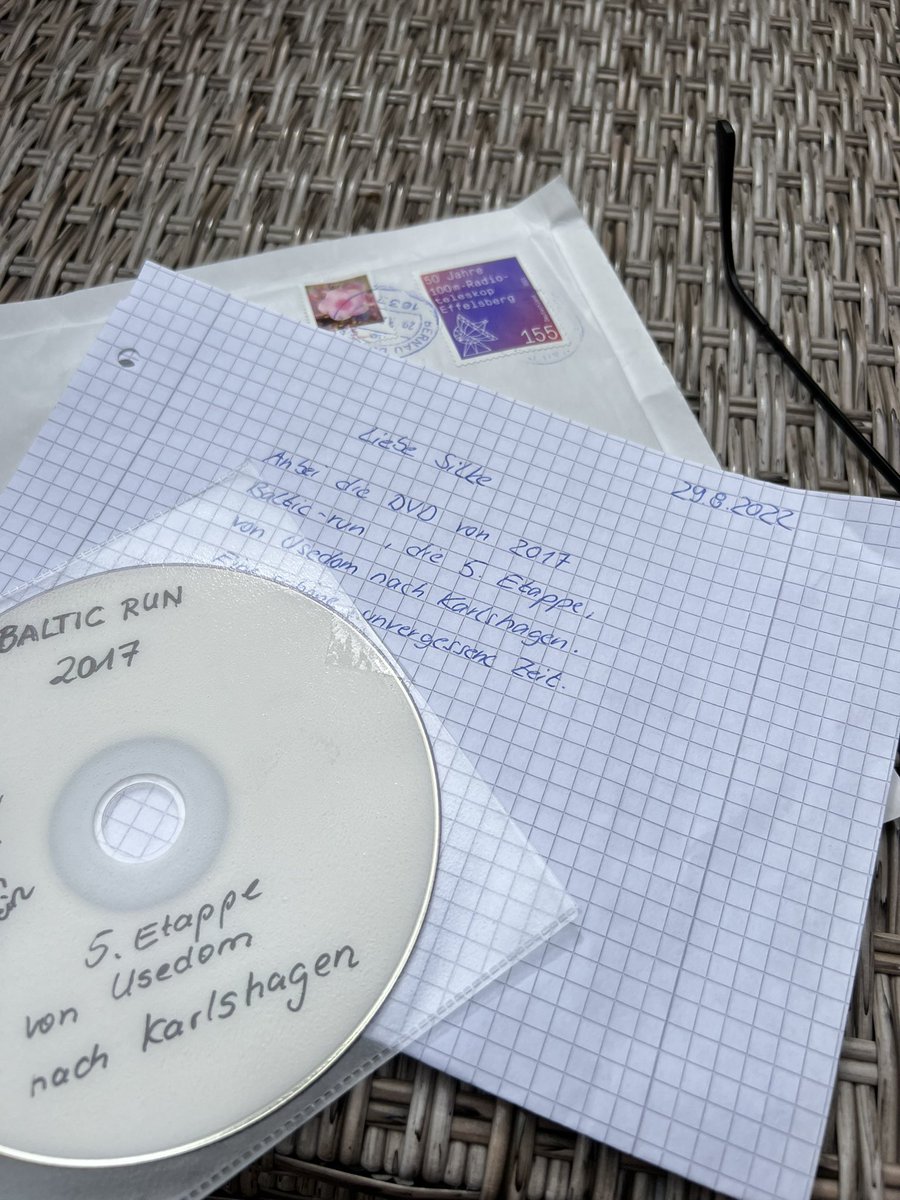 50 Jahre
100m-Radio-
teleskop
Effelsberg
155
Liebe Silke
29.8.2022
Anbei die DVD von 2017
Baltic-run, die 5. Etappe,
von Usedom nach Karlshagen.
unvergessene Zeit.
BALTIC RUN
2017
5. Etappe
von Usedom
nach Karlshagen